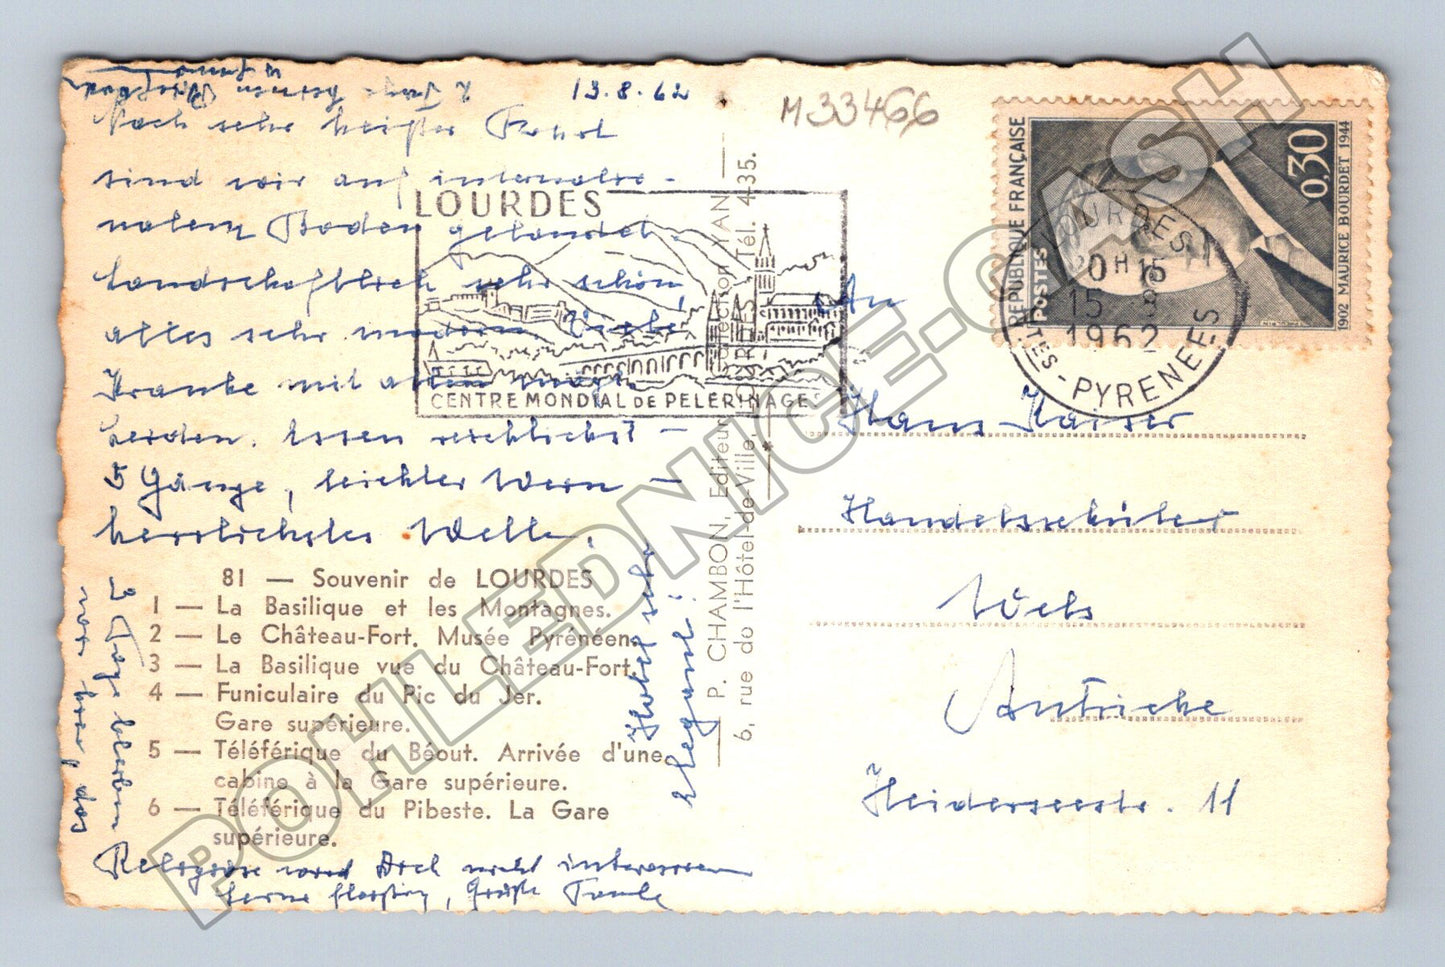 13.8.62
M33466
Nach sehr heißer Fahrt
sind wir auf internatio-
nalem Boden gelandet.
Landschaftlich sehr schön,
alles sehr modern
Kranke mit allen mögl.
Leiden. Essen reichlichst –
5 Gänge, leichter Wein –
herrlichstes Wetter.
Hotel sehr
elegant!
3 Tage bleiben
wir hier, das
Religiöse wird Dich nicht interessieren
Lerne fleißig, Grüße Tante
LOURDES
CENTRE MONDIAL DE PELERINAGES
81 — Souvenir de LOURDES
1 — La Basilique et les Montagnes.
2 — Le Château-Fort. Musée Pyrénéen.
3 — La Basilique vue du Château-Fort.
4 — Funiculaire du Pic du Jer.
Gare supérieure.
5 — Téléférique du Béout. Arrivée d'une
cabine à la Gare supérieure.
6 — Téléférique du Pibeste. La Gare
supérieure.
P. CHAMBON, Editeur, LOURDES Collection YAN
6, rue de l'Hôtel-de-Ville Tél. 4-35.
REPUBLIQUE FRANÇAISE
POSTES
0,30
1902 MAURICE BOURDET 1944
LOURDES
20H15
15-8
1962
HTES-PYRENEES
An
Hans Kaiser
Handelsschüler
Wels
Autriche
Heiderseestr. 11
POHLEDNICE.CASH